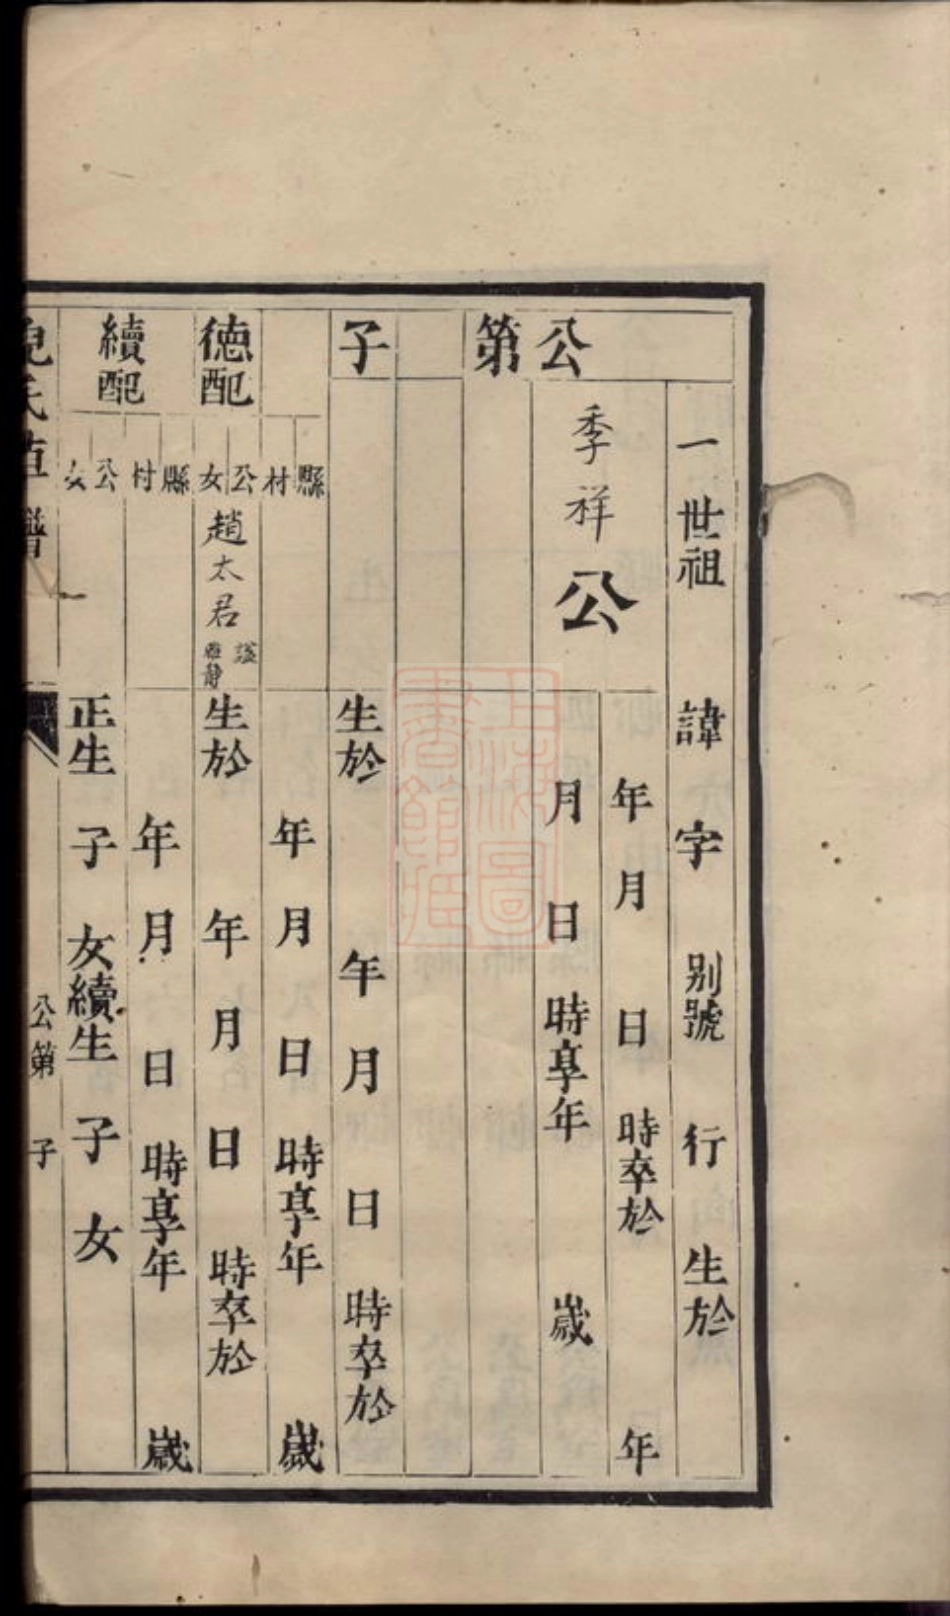 公第
子
一世祖 諱 字 别號 行 生於
季祥公
年 月 日 時卒於 年
月 日 時享年 歲
生於 年 月 日 時卒於
縣 村
年 月 日 時享年 歲
德配
公 女
趙太君
諡
雅靜
生於 年 月 日 時卒於
續配
縣 村
年 月 日 時享年 歲
公 女
正生 子 女續生 子 女
氏直譜
公第 子
上海圖書館藏